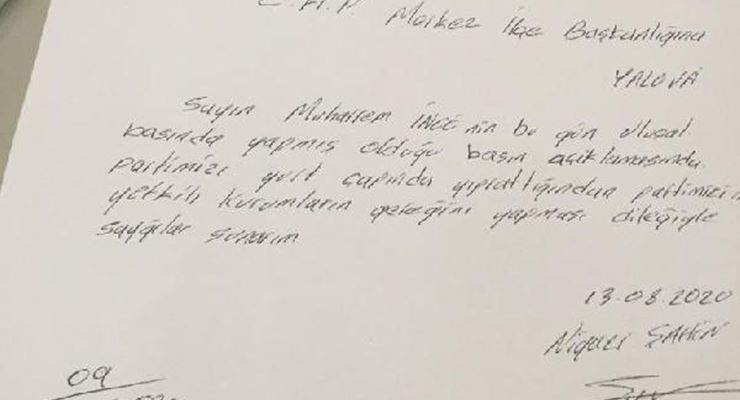 C.H.P. Merkez İlçe Başkanlığına
YALOVA
Sayın Muharrem İNCE nin bu gün ulusal
basında yapmış olduğu basın açıklamasında
partimizi yurt çapında yıprattığından partimizin
yetkili kurumların gereğini yapması dileğiyle
saygılar sunarım
13.08.2020
ŞAHİN
09